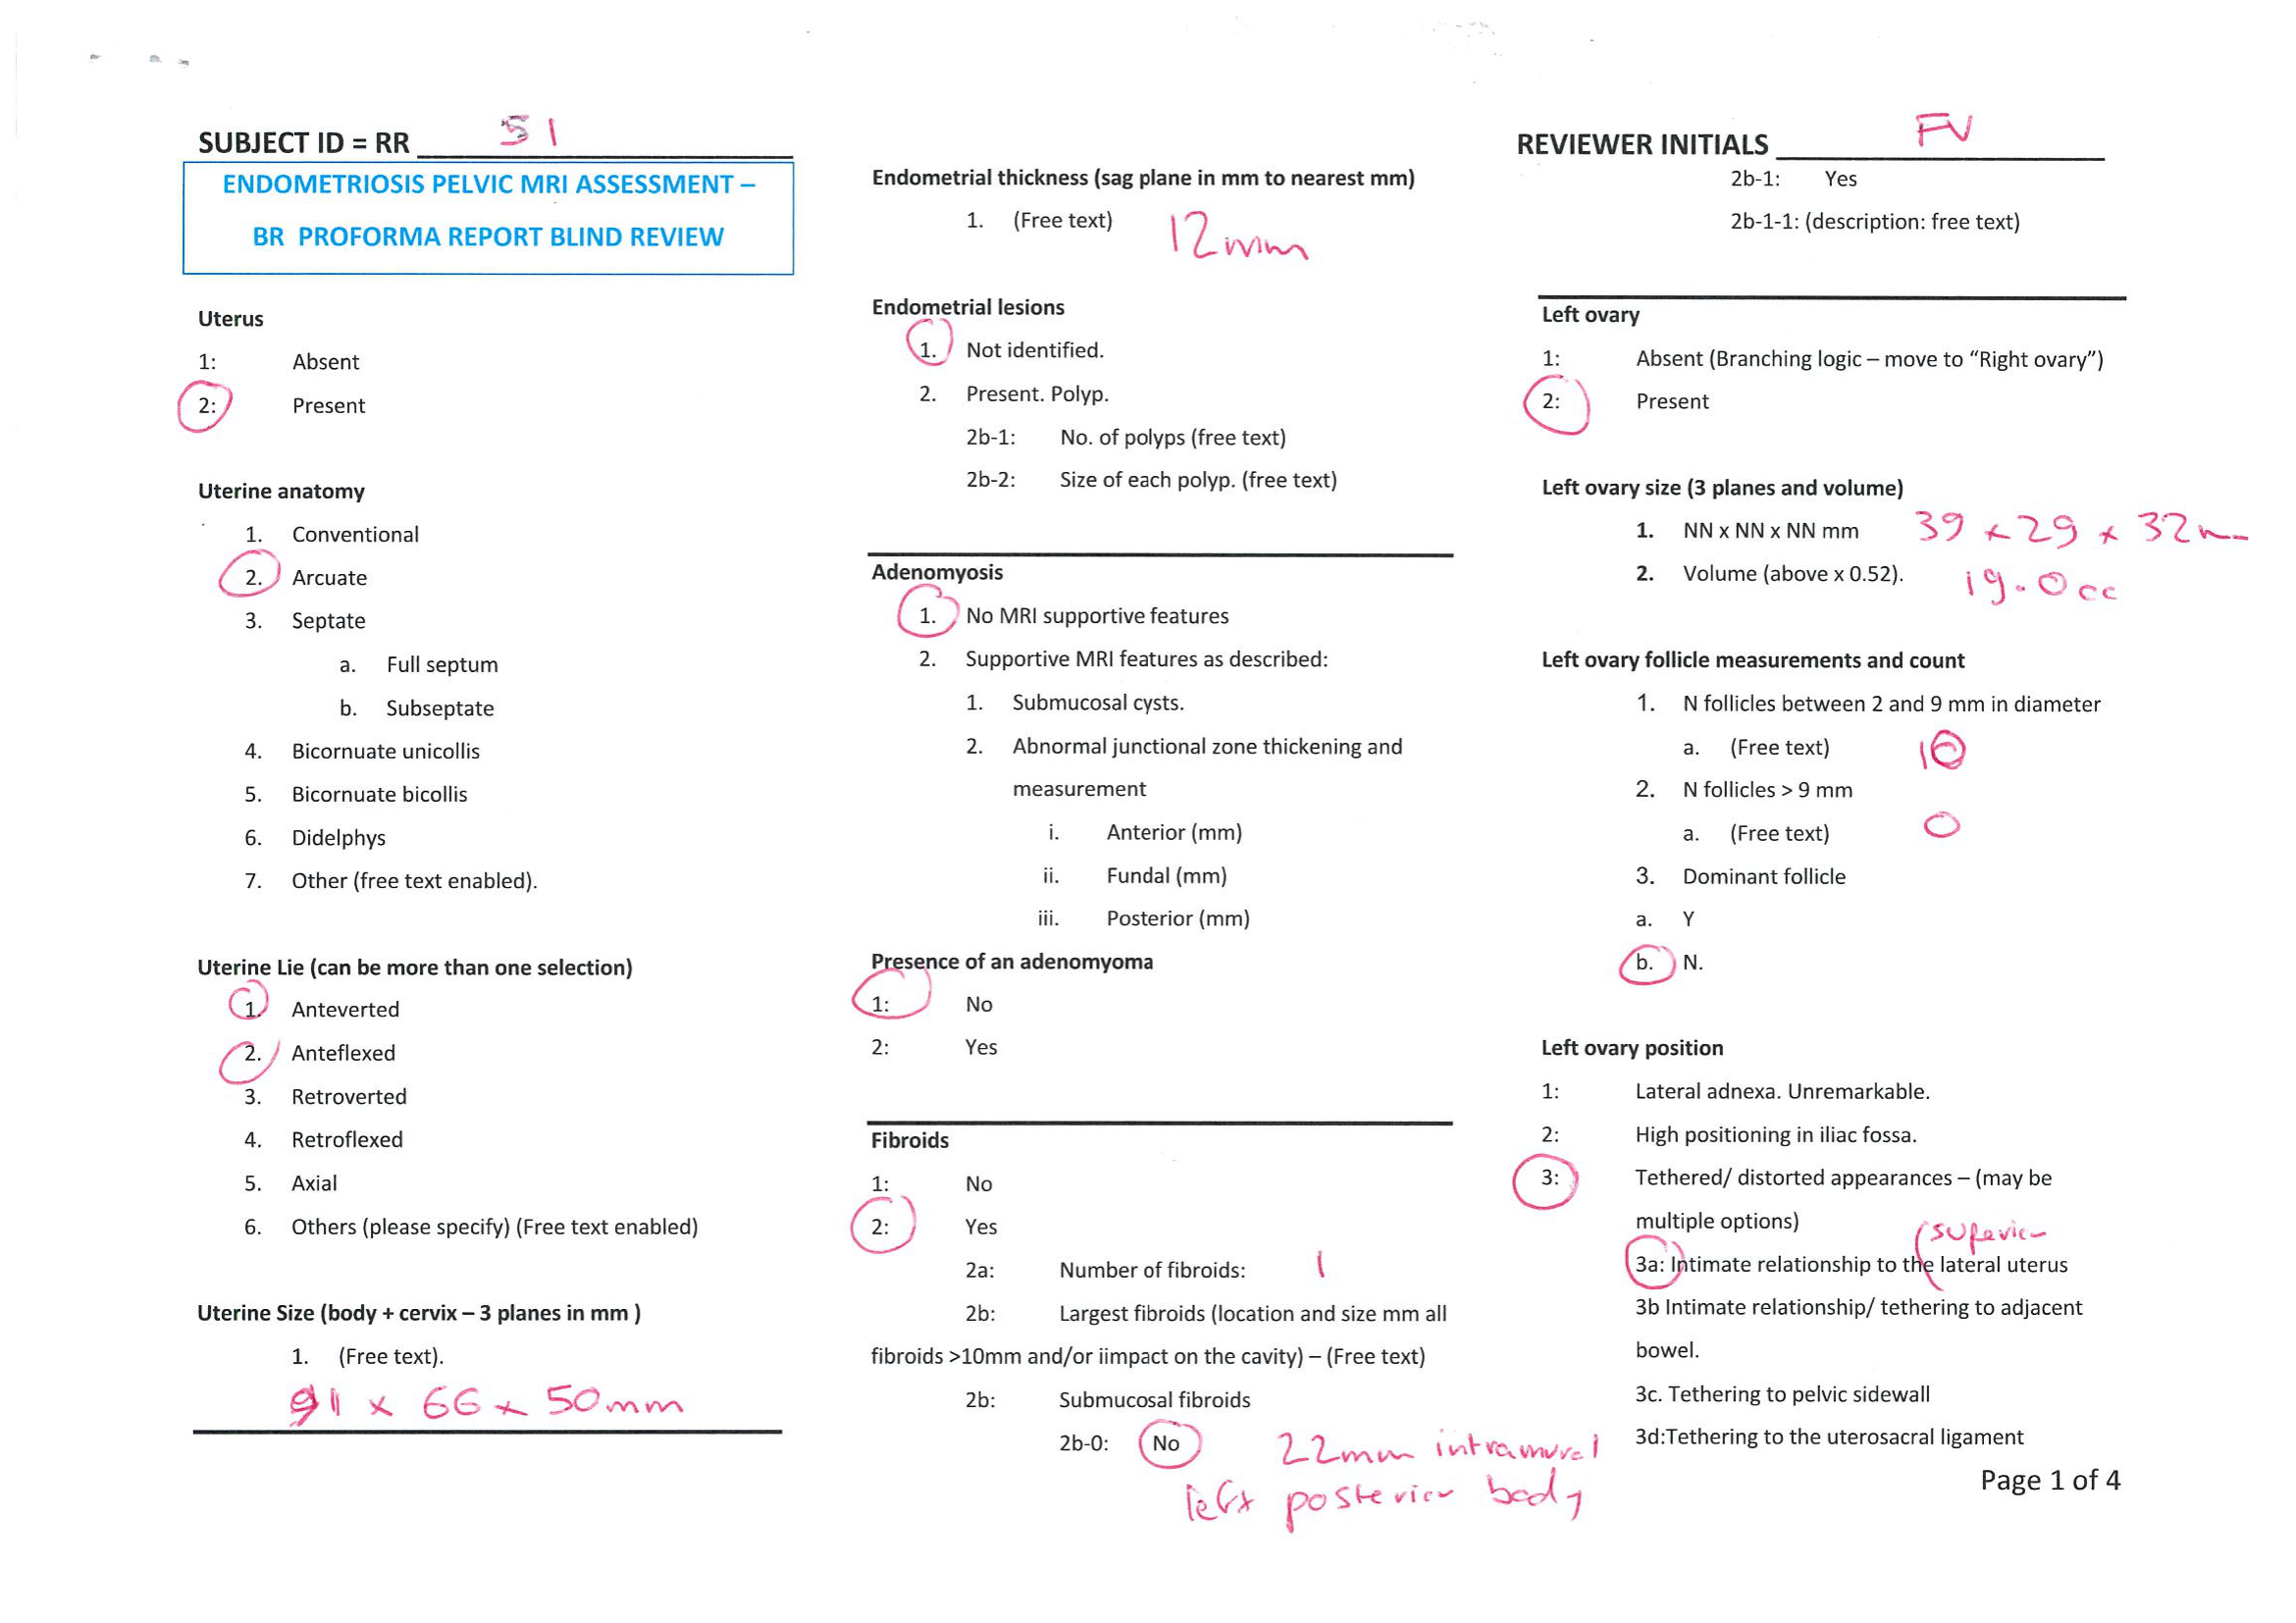 SUBJECT ID = RR 51
ENDOMETRIOSIS PELVIC MRI ASSESSMENT –
BR PROFORMA REPORT BLIND REVIEW
Uterus
1: Absent
2: Present
Uterine anatomy
1. Conventional
2. Arcuate
3. Septate
a. Full septum
b. Subseptate
4. Bicornuate unicollis
5. Bicornuate bicollis
6. Didelphys
7. Other (free text enabled).
Uterine Lie (can be more than one selection)
1. Anteverted
2. Anteflexed
3. Retroverted
4. Retroflexed
5. Axial
6. Others (please specify) (Free text enabled)
Uterine Size (body + cervix – 3 planes in mm )
1. (Free text).
91 x 66 x 50mm
Endometrial thickness (sag plane in mm to nearest mm)
1. (Free text) 12mm
Endometrial lesions
1. Not identified.
2. Present. Polyp.
2b-1: No. of polyps (free text)
2b-2: Size of each polyp. (free text)
Adenomyosis
1. No MRI supportive features
2. Supportive MRI features as described:
1. Submucosal cysts.
2. Abnormal junctional zone thickening and
measurement
i. Anterior (mm)
ii. Fundal (mm)
iii. Posterior (mm)
Presence of an adenomyoma
1: No
2: Yes
Fibroids
1: No
2: Yes
2a: Number of fibroids: 1
2b: Largest fibroids (location and size mm all
fibroids >10mm and/or iimpact on the cavity) – (Free text)
2b: Submucosal fibroids
2b-0: No 22mm intramural
left posterior body
REVIEWER INITIALS FV
2b-1: Yes
2b-1-1: (description: free text)
Left ovary
1: Absent (Branching logic – move to “Right ovary”)
2: Present
Left ovary size (3 planes and volume)
1. NN x NN x NN mm 39 x 29 x 32mm
2. Volume (above x 0.52). 19.0cc
Left ovary follicle measurements and count
1. N follicles between 2 and 9 mm in diameter
a. (Free text) 10
2. N follicles > 9 mm
a. (Free text) 0
3. Dominant follicle
a. Y
b. N.
Left ovary position
1: Lateral adnexa. Unremarkable.
2: High positioning in iliac fossa.
3: Tethered/ distorted appearances – (may be
multiple options)
superior
3a: Intimate relationship to the lateral uterus
3b Intimate relationship/ tethering to adjacent
bowel.
3c. Tethering to pelvic sidewall
3d:Tethering to the uterosacral ligament
Page 1 of 4